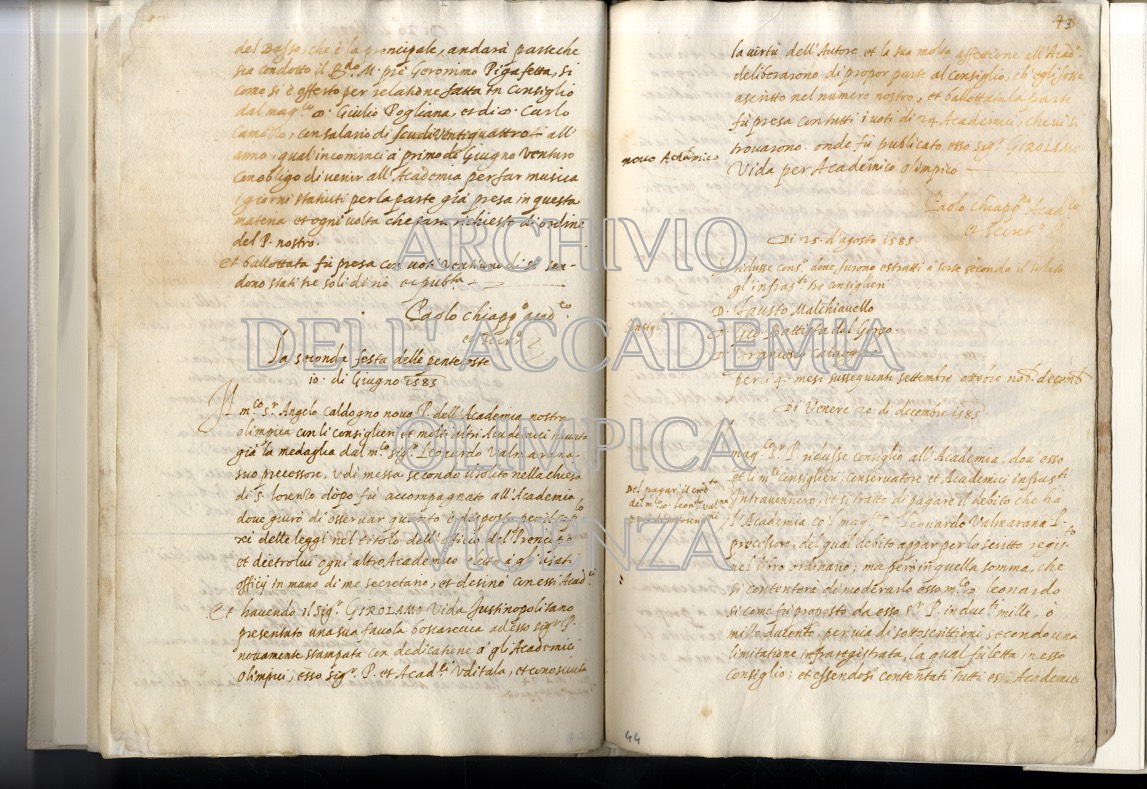 del Basso, che è la principale, andarà parte che
sia condotto il R.do M. pre Geronimo Pigafetta, si
come si è offerto per relatione fatta in Consiglio
dal mag.co s. Giulio Pogliana, et di s. Carlo
con salario di scudi ventiquattro all'
anno, qual incominci a primo di Giugno venturo
con obligo di venir all'Academia per far musica
i giorni statuiti per la parte già presa in questa
materia et ogni volta che sarà richiesto di ordine
del P. nostro.
et ballottata fu presa con voti
dono stati tre soli di nò
Paolo Chiapp.o acad.co
et secr.o
La seconda festa delle pentecoste
10. di Giugno 1585
Il m.co s.r Angelo Caldogno novo P. dell'Academia nostra
olimpica con li consiglieri et molti altri Academici havuta
già la medaglia dal m.co sig.r Leonardo Valmarana
suo precessore, udì messa secondo il solito nella chiesa
di S. Lorenzo dopo fu accompagnato all'Academia,
dove giurò di osservar quanto è disposto per il
delle leggi nel titolo dell'officio del Prencipe
et dietro lui ogni altro Academico
officij in mano di me secretario, et desinò con essi Acad.ci
Et havendo il sig.r GIROLAMO Vida Justinopolitano
presentato una sua favola boscareccia ad esso sig.r P.
novamente stampata con dedicatione a gli Academici
olimpici, esso sig.r P. et Acad.ci uditala, et conosciuta
43
la virtù dell'Autore et la sua molta affettione all'Acad.a
deliberarono di propor parte al Consiglio, ch'egli fosse
ascritto nel numero nostro, et ballottata la parte
fù presa con tutti i voti di 24 Academici, che vi si
trovarono. onde fù publicato esso sig.r GIROLAMO
Vida per Academico olimpico
novo
Paolo Chiapp.o Acad.co
et Secret.o
Di 25. d'agosto 1585
ridusse cons.o dove furono estratti a sorte secondo il solito
gl'infras.ti tre consiglieri
D. Fausto Malchiavello
D. Gio. Battista dal Gorgo
D. Francesco
per li 4. mesi susseguenti settembre ottobre nov. decemb
Di Venere 20 di decembre 1585
Il mag.co s.r P. ridusse consiglio all'Academia, dov'esso
et li m.ci consiglieri, conservatore et Academici infras.ti
intravennero, et si trattò di pagare il debito che ha
l'Academia co'l mag.co s. Leonardo Valmarana P.
precessore, del qual debito appar per lo scritto
nel libro ordinario, ma però in quella somma, che
si contenterà di moderarlo esso m.co s. Leonardo
si come fù proposto da esso s.r P. in due. mille. o
mille ducento, per via di sottoscrittioni secondo una
limitatione infraregistrata, la qual fù letta in esso
Consiglio; et essendosi contentati tutti essi Academici
Del pagar il
44
ARCHIVIO
DELL'ACCADEMIA
OLIMPICA
VICENZA